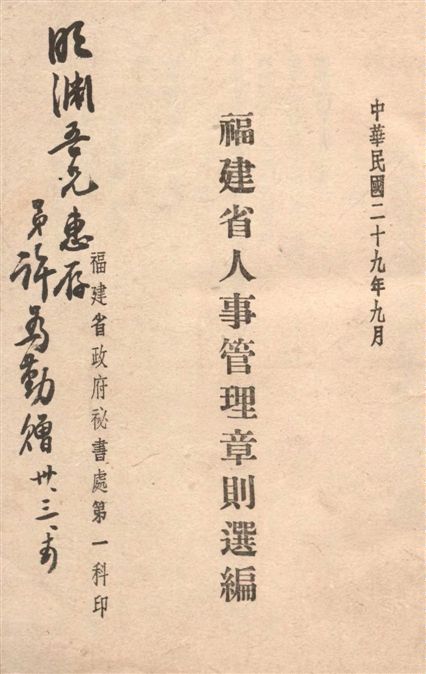 中華民國二十九年九月
福建省人事管理章則選編
福建省政府祕書處第一科印
淵吾兄惠存
弟許勤贈 卅、三、